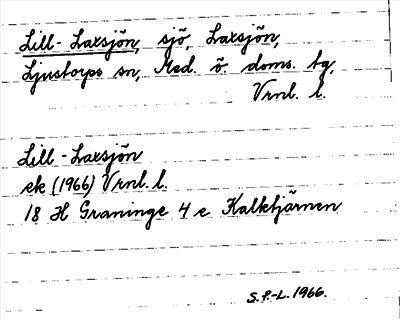 Lill-Laxsjön, sjö, Laxsjön,
Ljustorps sn, Med. ö. doms. tg,
Vrnl. l.
Lill-Laxsjön
ek (1966) Vrnl. l.
18 H Graninge 4 e Kalktjärnen
S.F.-L. 1966.